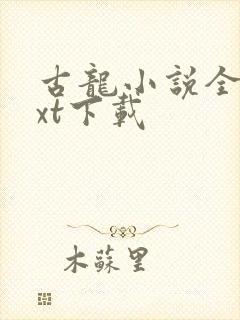 古龍小説全
xt下載
木蘇里